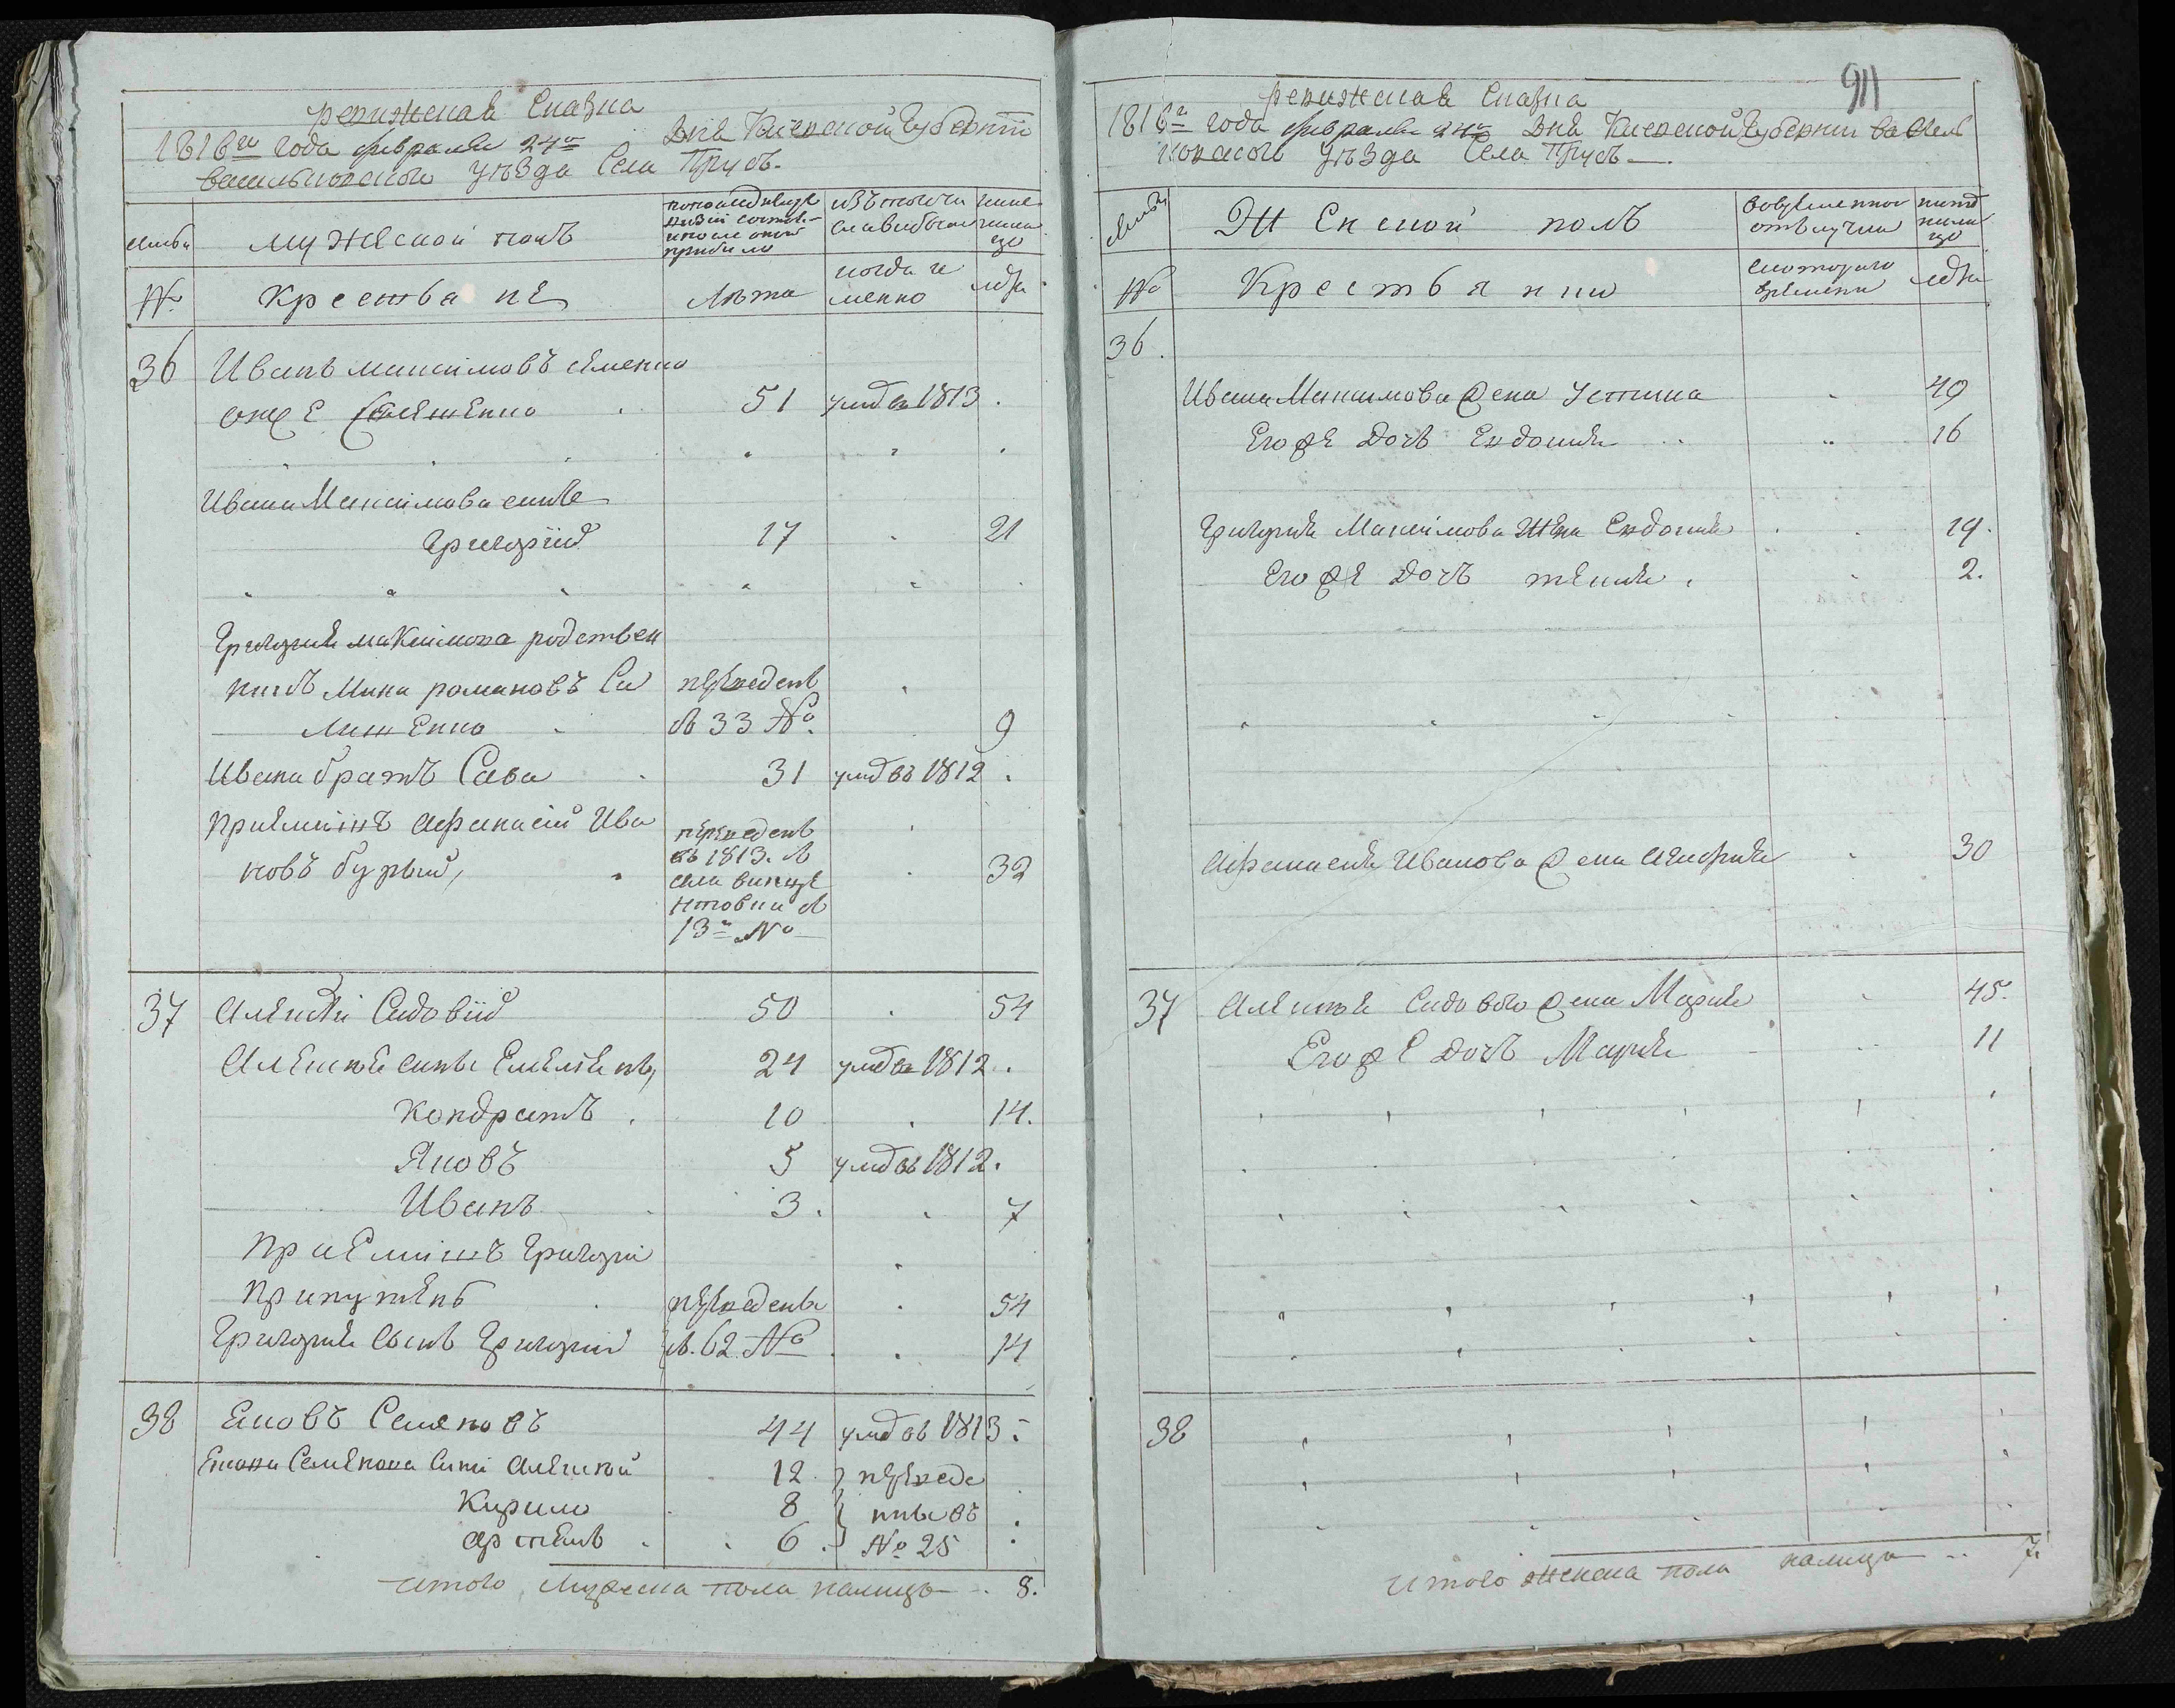 Ревижская Сказка
1816го года февраля 24го дня Киевской Губернии
васильковского уезда Села Прусъ.
семьи
мужеской полъ
по последней ревизии состояло и после оной прибыло
изъ того числа выбыло
ныне на лицо
№
Крестьяне
Лѣта
когда именно
лѣта
36
Иванъ максимовъ
онже 51 умръ въ 1813
Ивана Максимова сынъ
Григорїй 17 21
Григория максимова родствен
никъ Мина романовъ Са переведенъ
с 33 № 9
Ивана братъ Сава 31 умръ въ 1812
приемышъ Афанасий Ива переведенъ
новъ бурый, въ 1813. с 32
села винце
нтовки с
13го №
37 Алексѣй Садовїй 50 54
Алексѣя сынъ Емелїянъ, 24 умръ въ 1812
Кондратъ 10 14.
Яковъ 5 умръ въ 1812.
Иванъ 3. 7
Приемышъ Григорий
переведены 54
Григория сынъ Григорий с. 62 № 14
38 Яковъ Семеновъ 44 умръ въ 1813
Якова Семенова сынъ Алексѣй 12 переведе
Кирило 8 ны въ
Артемъ 6 № 25
итого мужеска пола налицо 8.
911
Ревижская Сказка
1816го года февраля 24го дня Киевской Губернии василь
ковского уезда Села Прусъ
семьи
Женской полъ
во временной отлучке
ныне на лицо
№
Крестьянки
с которого времени
лѣта
36.
Ивана Максимова жена Устина 49
Его же дочь Евдокия 16
Григория Максимова жена Евдокия 19.
Его же дочь 2.
Афанасия Иванова жена 30
37 Алексѣя Садового жена Мария 45.
Его же дочь Мария 11
38
итого женска пола налицо 7.